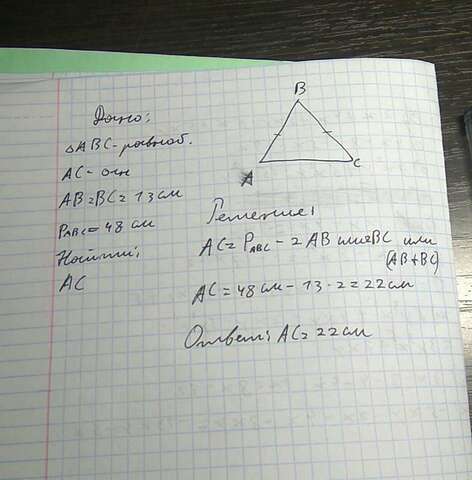 Дано:
△ABC - равноб.
AC - осн
AB = BC = 13 см
P ABC = 48 см
Найти:
AC
B
A
C
Решение:
AC = P ABC - 2 AB или 2BC или
(AB + BC)
AC = 48 см - 13 · 2 = 22 см
Ответ: AC = 22 см